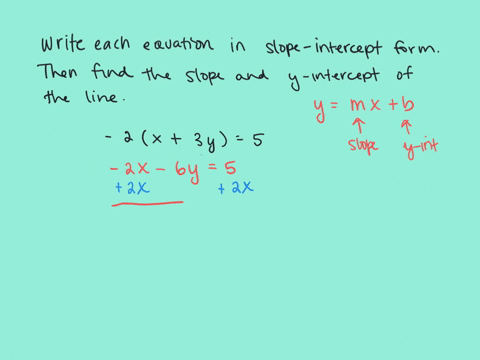 Write each equation in slope-intercept form.
Then find the slope and y-intercept of
the line.
y = mx + b
slope y-int
-2(x + 3y) = 5
-2x - 6y = 5
+2x +2x